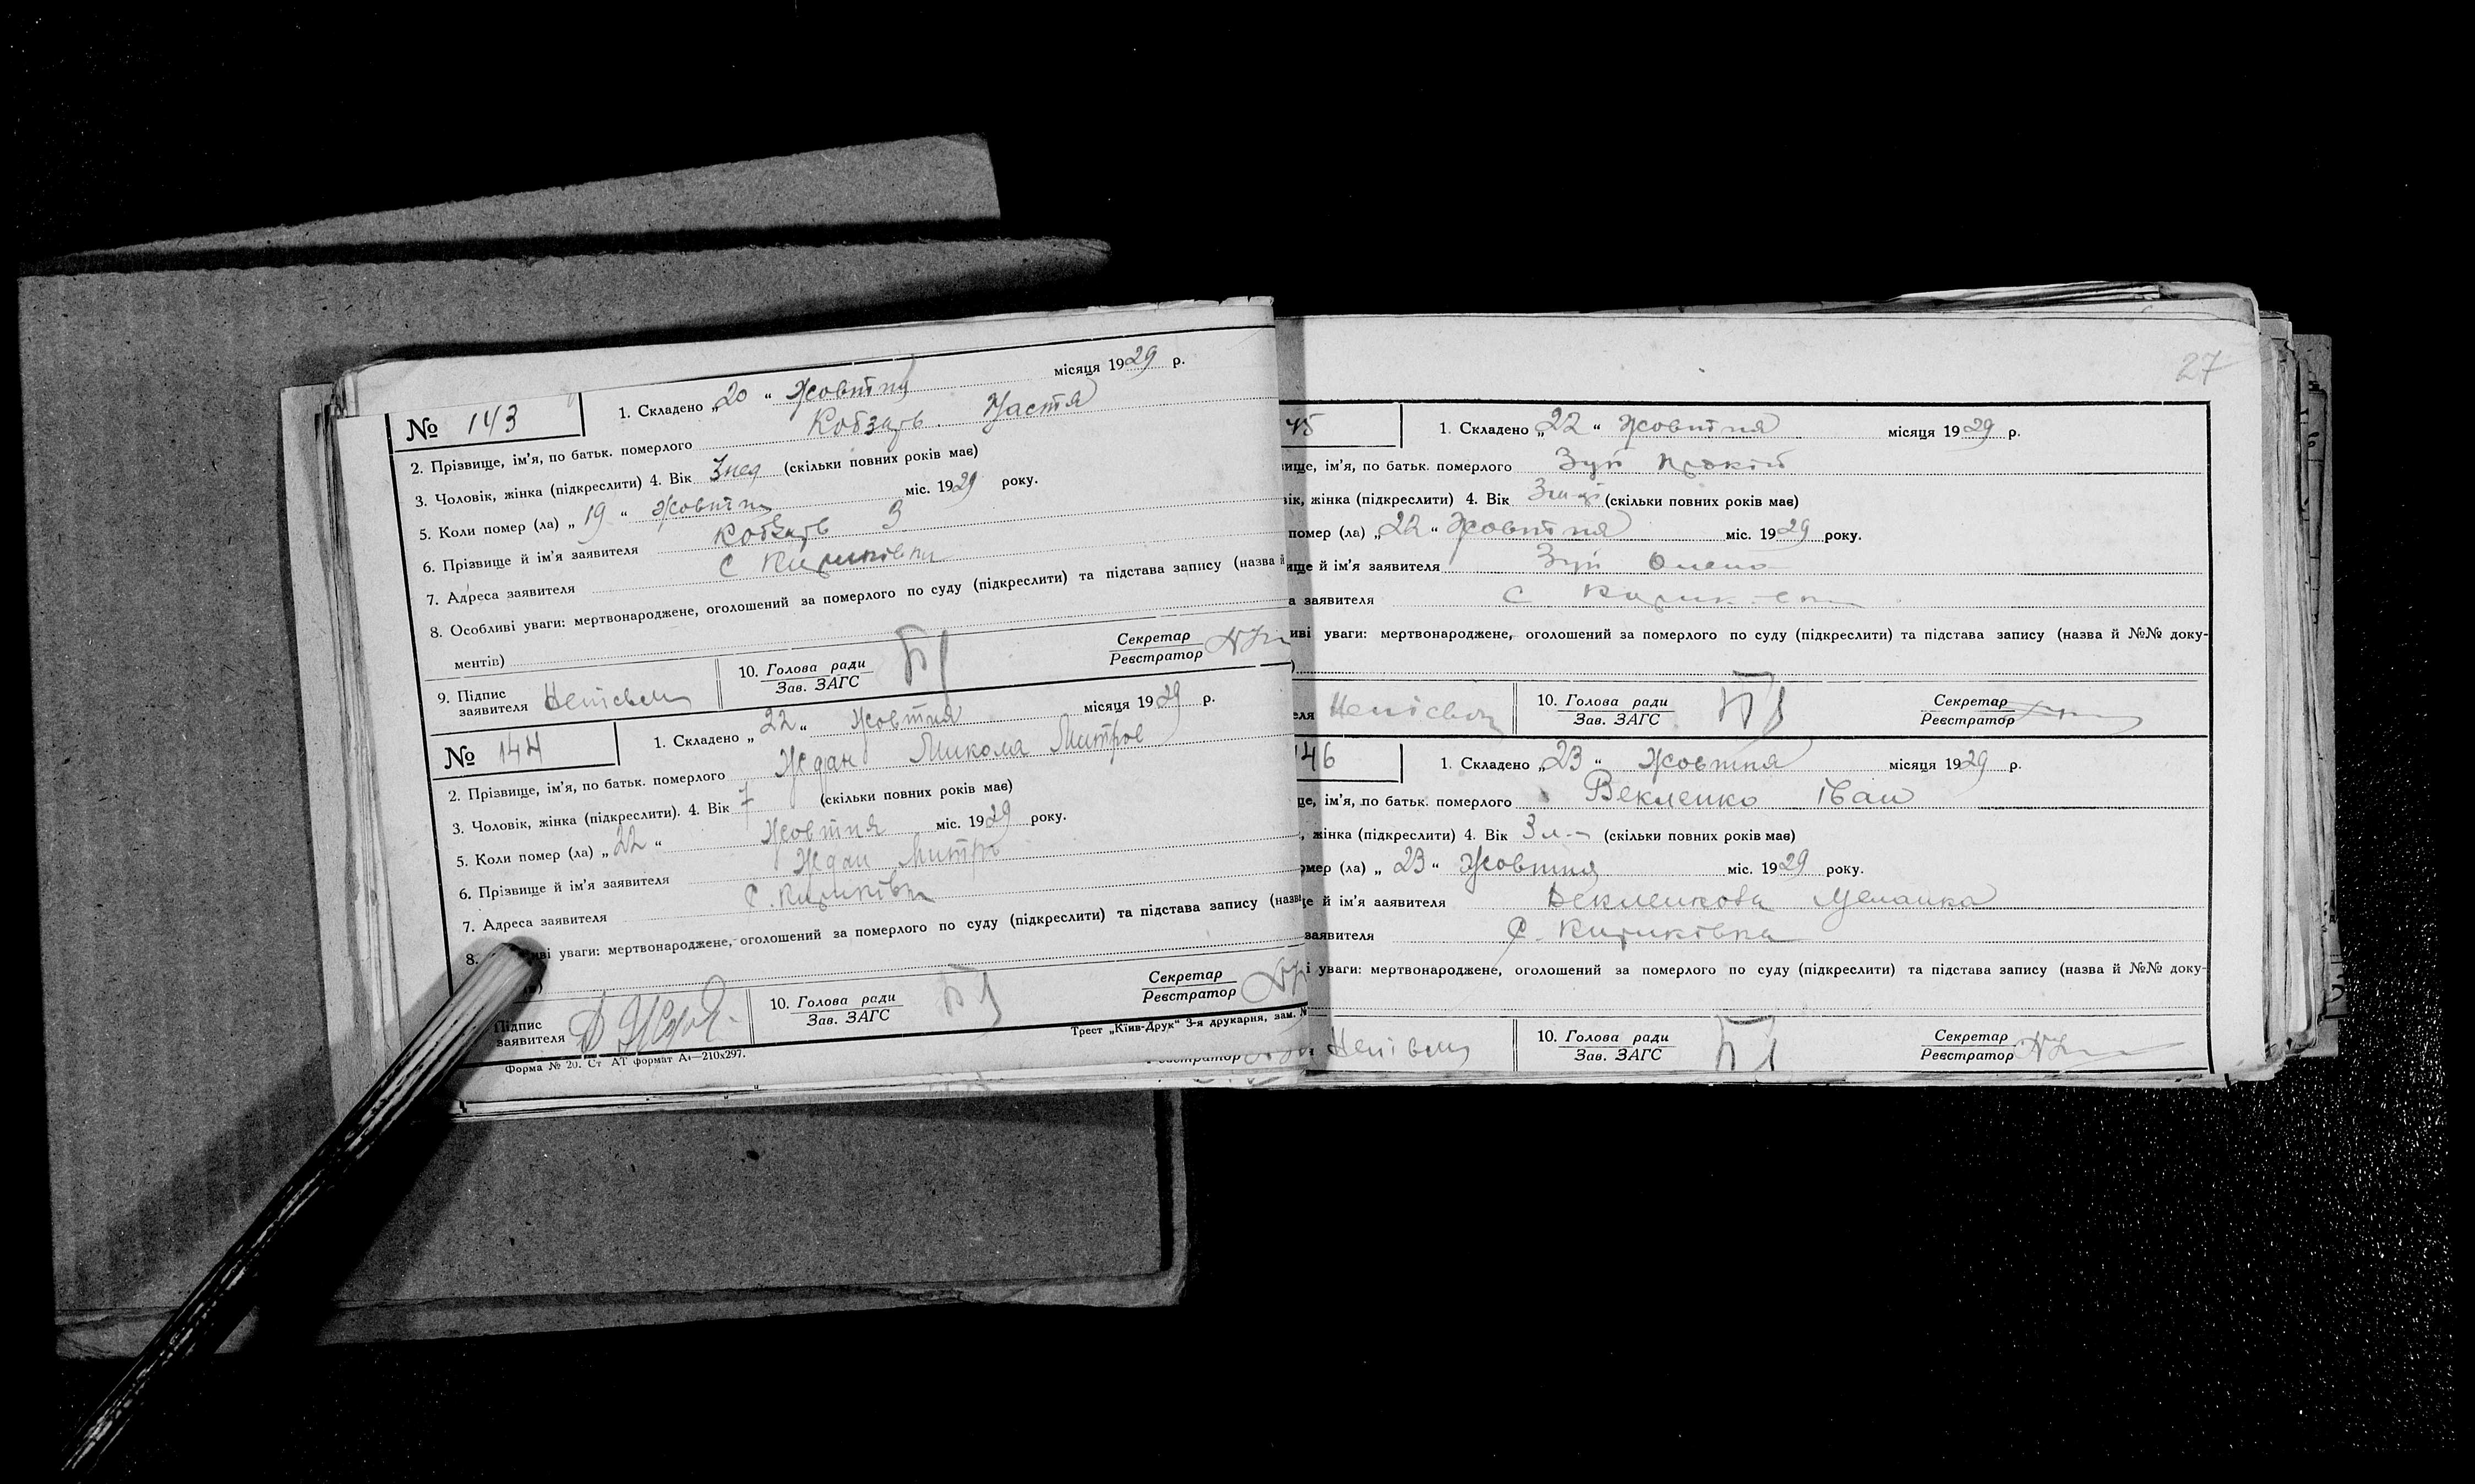 № 143
1. Складено „20 “ Жовтня місяця 1929 р.
2. Прізвище, ім’я, по батьк. померлого Кобзарь Настя
3. Чоловік, жінка (підкреслити) 4. Вік 3 нед (скільки повних років має)
5. Коли помер (ла) „ 19 “ Жовтня міс. 1929 року.
6. Прізвище й ім’я заявителя Кобзарь З
7. Адреса заявителя С Кириківка
8. Особливі уваги: мертвонароджене, оголошений за померлого по суду (підкреслити) та підстава запису (назва й
ментів)
9. Підпис заявителя
10. Голова ради Зав. ЗАГС
Секретар Реєстратор
№ 144
1. Складено „ 22 “ Жовтня місяця 1929 р.
2. Прізвище, ім’я, по батьк. померлого Ждан Микола Митров
3. Чоловік, жінка (підкреслити). 4. Вік 7 (скільки повних років має)
5. Коли помер (ла) „ 22 “ Жовтня міс. 1929 року.
6. Прізвище й ім’я заявителя Ждан Митро
7. Адреса заявителя С. Кириківка
8. уваги: мертвонароджене, оголошений за померлого по суду (підкреслити) та підстава запису (назва
Підпис заявителя
10. Голова ради Зав. ЗАГС
Секретар Реєстратор
Форма № 20. Ст АТ формат А₄—210х297.
Трест „Київ-Друк“ 3-я друкарня, зам.
27
45
1. Складено „22 “ Жовтня місяця 1929 р.
ище, ім’я, по батьк. померлого Зуй
ік, жінка (підкреслити) 4. Вік (скільки повних років має)
помер (ла) „22 “ Жовтня міс. 1929 року.
ище й ім’я заявителя Зуй Олена
а заявителя С
иві уваги: мертвонароджене, оголошений за померлого по суду (підкреслити) та підстава запису (назва й №№ доку-
10. Голова ради Зав. ЗАГС
Секретар Реєстратор
46
1. Складено „23 “ Жовтня місяця 1929 р.
ще, ім’я, по батьк. померлого Векленко Іван
жінка (підкреслити) 4. Вік (скільки повних років має)
омер (ла) „ 23 “ Жовтня міс. 1929 року.
е й ім’я заявителя Векленкова Меланка
заявителя С. Кириківка
і уваги: мертвонароджене, оголошений за померлого по суду (підкреслити) та підстава запису (назва й №№ доку-
10. Голова ради Зав. ЗАГС
Секретар Реєстратор